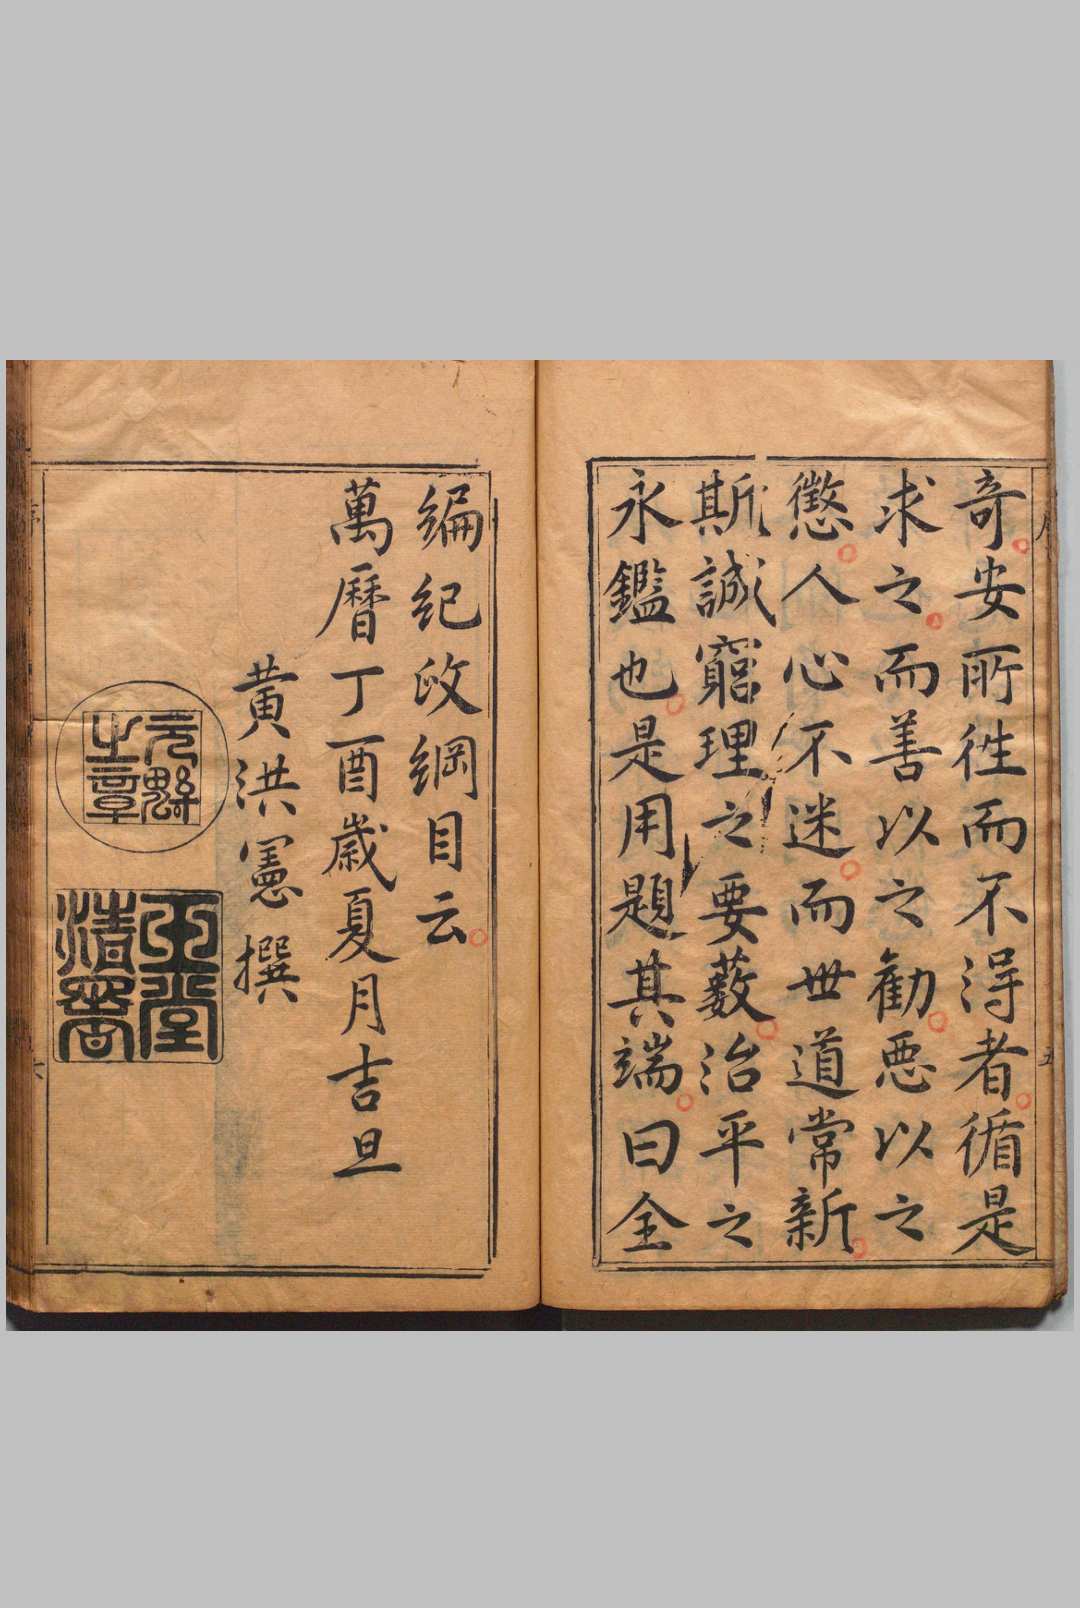 奇安所徃而不得者循是
求之而善以之勸惡以之
懲人心不迷而世道常新
斯誠窮理之要藪治平之
永鑑也是用題其端曰全
五
編紀政綱目云
萬曆丁酉歲夏月吉旦
黃洪憲撰
之章
玉堂
清署
六